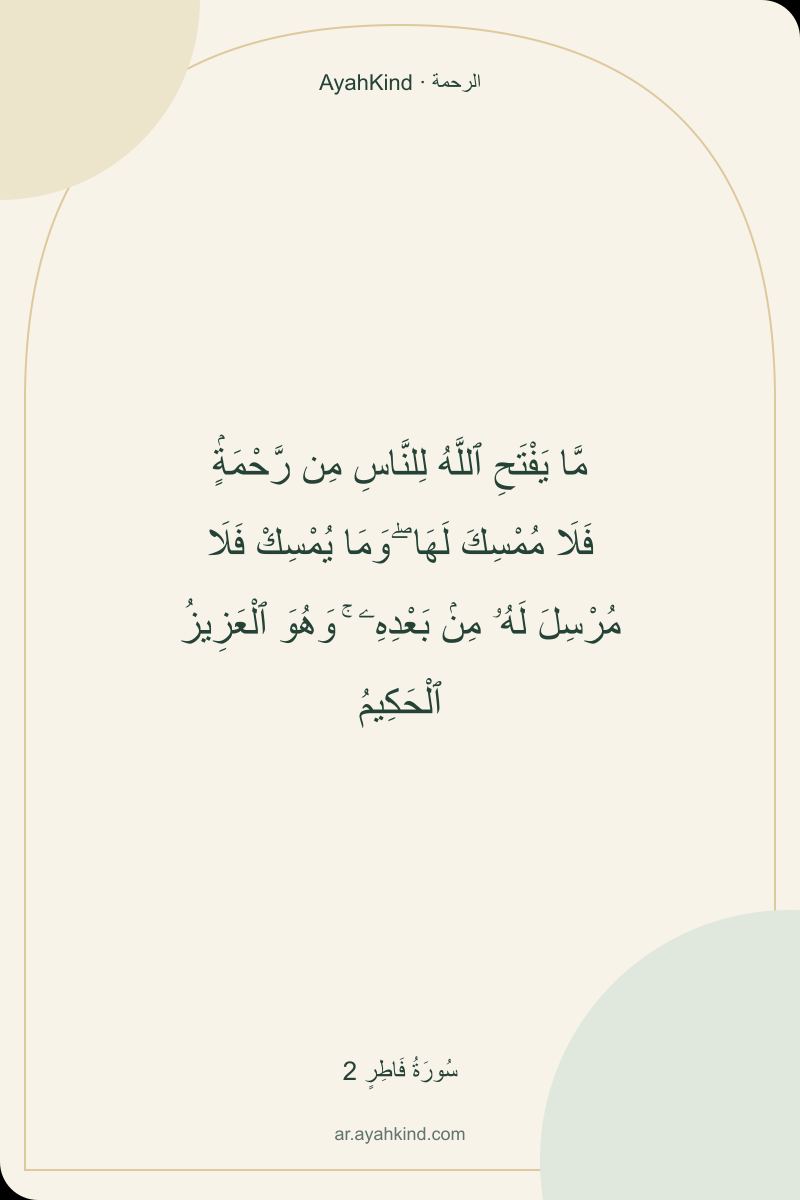 AyahKind · الرحمة
مَّا يَفْتَحِ ٱللَّهُ لِلنَّاسِ مِن رَّحْمَةٍۢ
فَلَا مُمْسِكَ لَهَا ۖ وَمَا يُمْسِكْ فَلَا
مُرْسِلَ لَهُۥ مِنۢ بَعْدِهِۦ ۚ وَهُوَ ٱلْعَزِيزُ
ٱلْحَكِيمُ
سُورَةُ فَاطِرٍ 2
ar.ayahkind.com